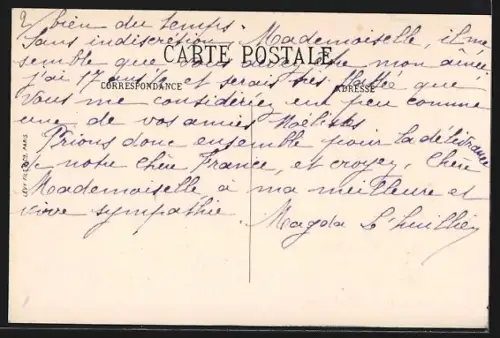 2/ bien du temps.
Sans indiscrétion, Mademoiselle, il me
CARTE POSTALE
semble que vous mon aînée
j'ai 17 ans ½ et serais très flattée que
CORRESPONDANCE ADRESSE
Vous me considériez un peu comme
une de vos amies Noëlistes
Prions donc ensemble pour la délivrance
de notre chère France, et croyez, Chère
Mademoiselle à ma meilleure et
vive sympathie.
Magda L'huillier